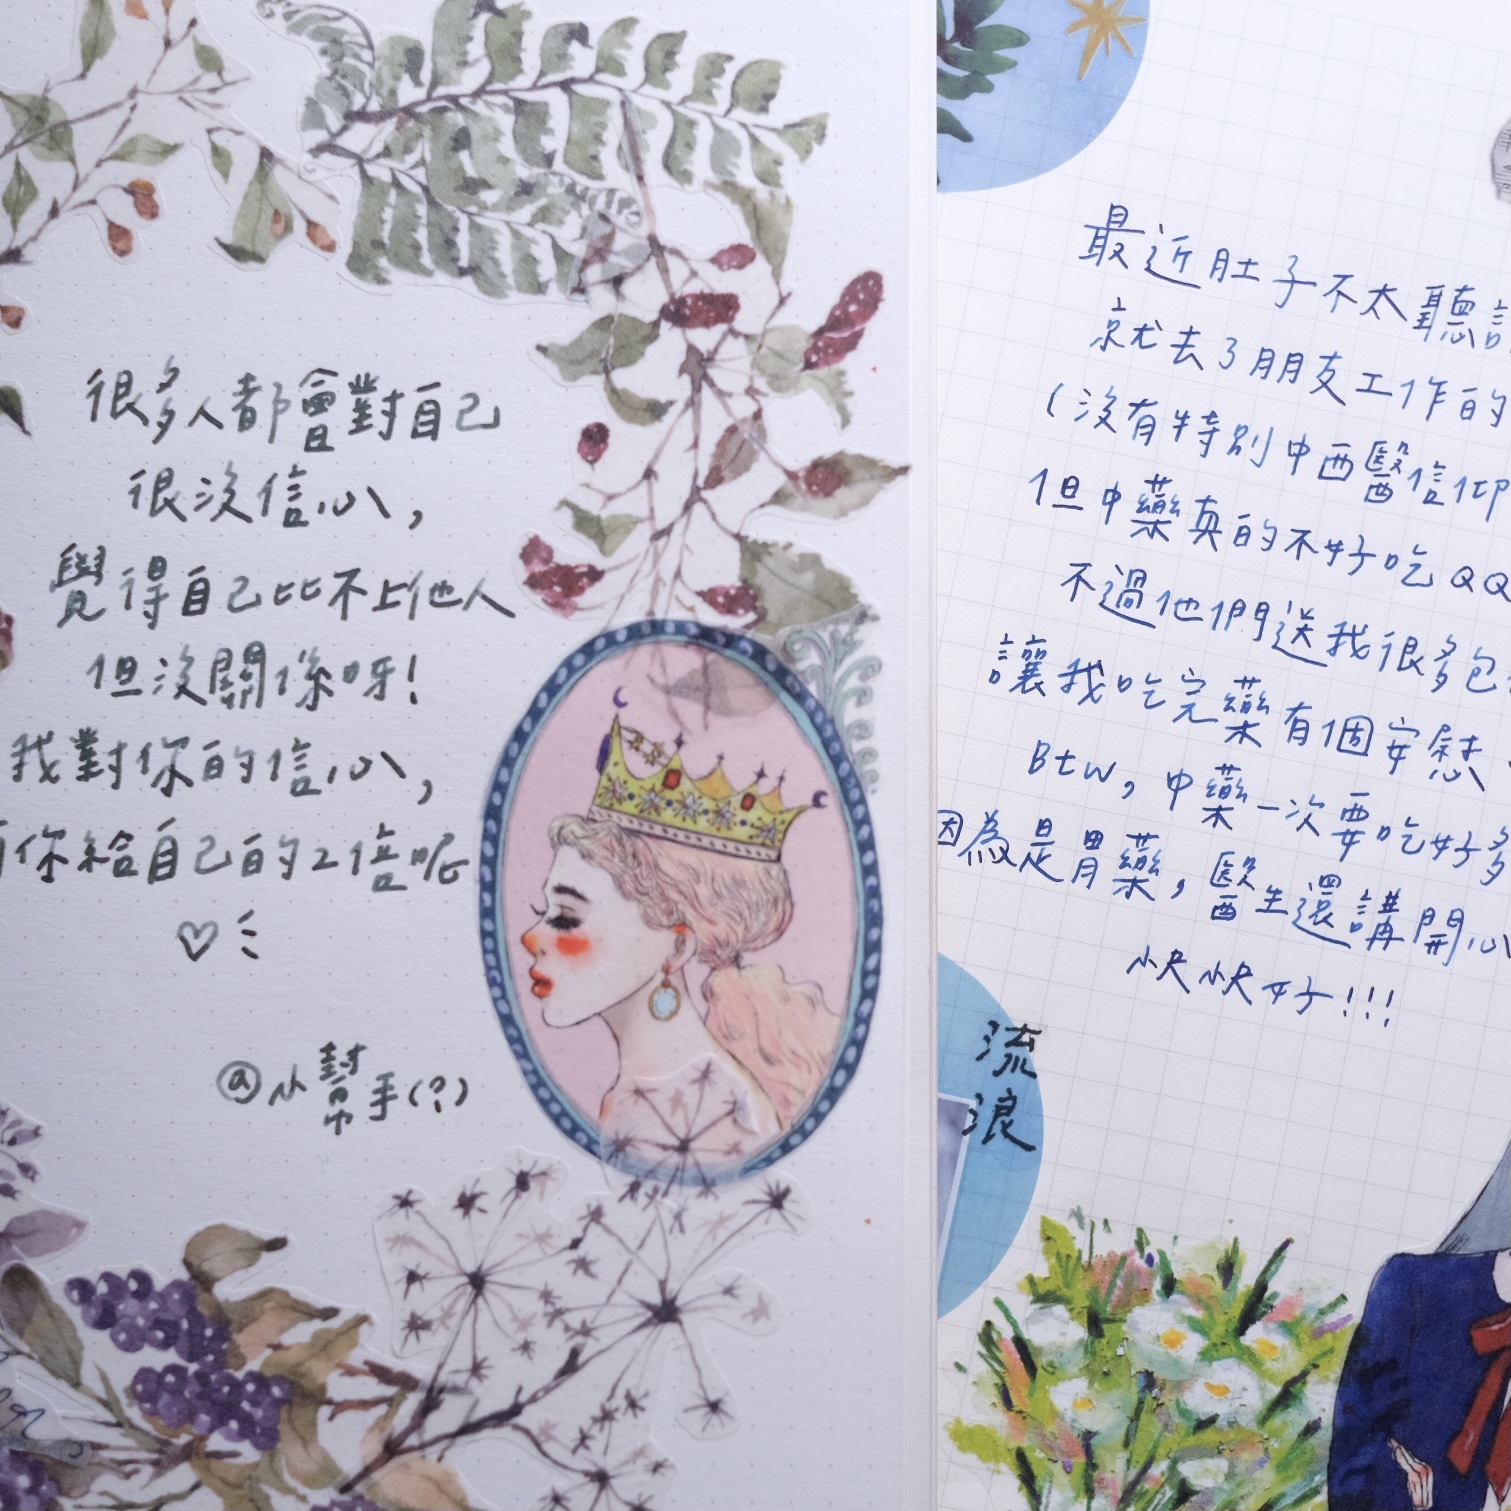 很多人都會對自己
很沒信心,
覺得自己比不上他人
但沒關係呀!
我對你的信心,
你給自己的2倍呢
♡
@小幫手(?)
最近肚子不太聽
就去了朋友工作的
(沒有特別中西醫信仰
但中藥真的不好吃QQ
不過他們送我很多包
讓我吃完藥有個安慰
Btw, 中藥一次要吃好多
因為是胃藥, 醫生還講開心
快快好!!!
流
浪